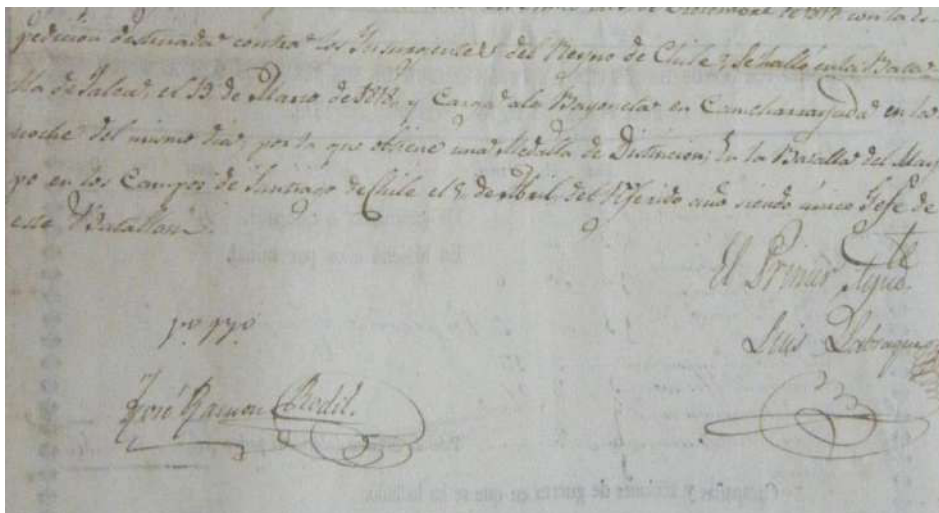 de Diciembre de 1817 con la Es-
pedicion destinada contra los Insurgentes del Reyno de Chile; Se halló en la Bata-
lla de Talca, el 19 de Marzo de 1818, y Carga ala Bayoneta en Cancharrayada en la
noche del mismo dia, por la que obtiene una Medalla de Distincion; En la Batalla del May-
po en los Campos de Santiago de Chile el 5 de Abril del referido año siendo unico Gefe de
este Batallon.
El Primer Ayud.te
Luis
José Ramon Rodil.
En
por mitad
Campañas y acciones de guerra en que se ha hallado